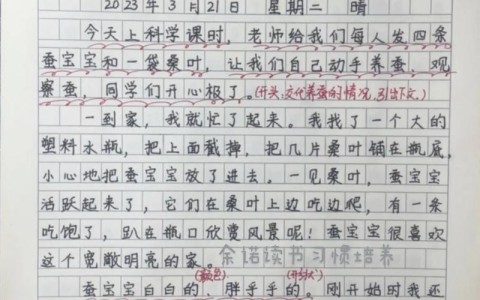 2023年3月21日 星期二 晴
今天上科学课时，老师给我们每人发四条
蚕宝宝和一袋桑叶，让我们自己动手养蚕、观
察蚕，同学们开心极了。(开头，交代养蚕的情况，引出下文。)
一到家，我就忙了起来。我找了一个大的
塑料水瓶，把上面截掉，把几片桑叶铺在瓶底，
小心地把蚕宝宝放了进去。一见桑叶，蚕宝宝
活跃起来了，它们在桑叶上边吃边爬，有一条
吃饱了，趴在瓶口欣赏风景呢！蚕宝宝很喜欢
这个宽敞明亮的家。
余诺读书习惯培养
(颜色) (形状)
蚕宝宝白白的、胖乎乎的。刚开始时我还